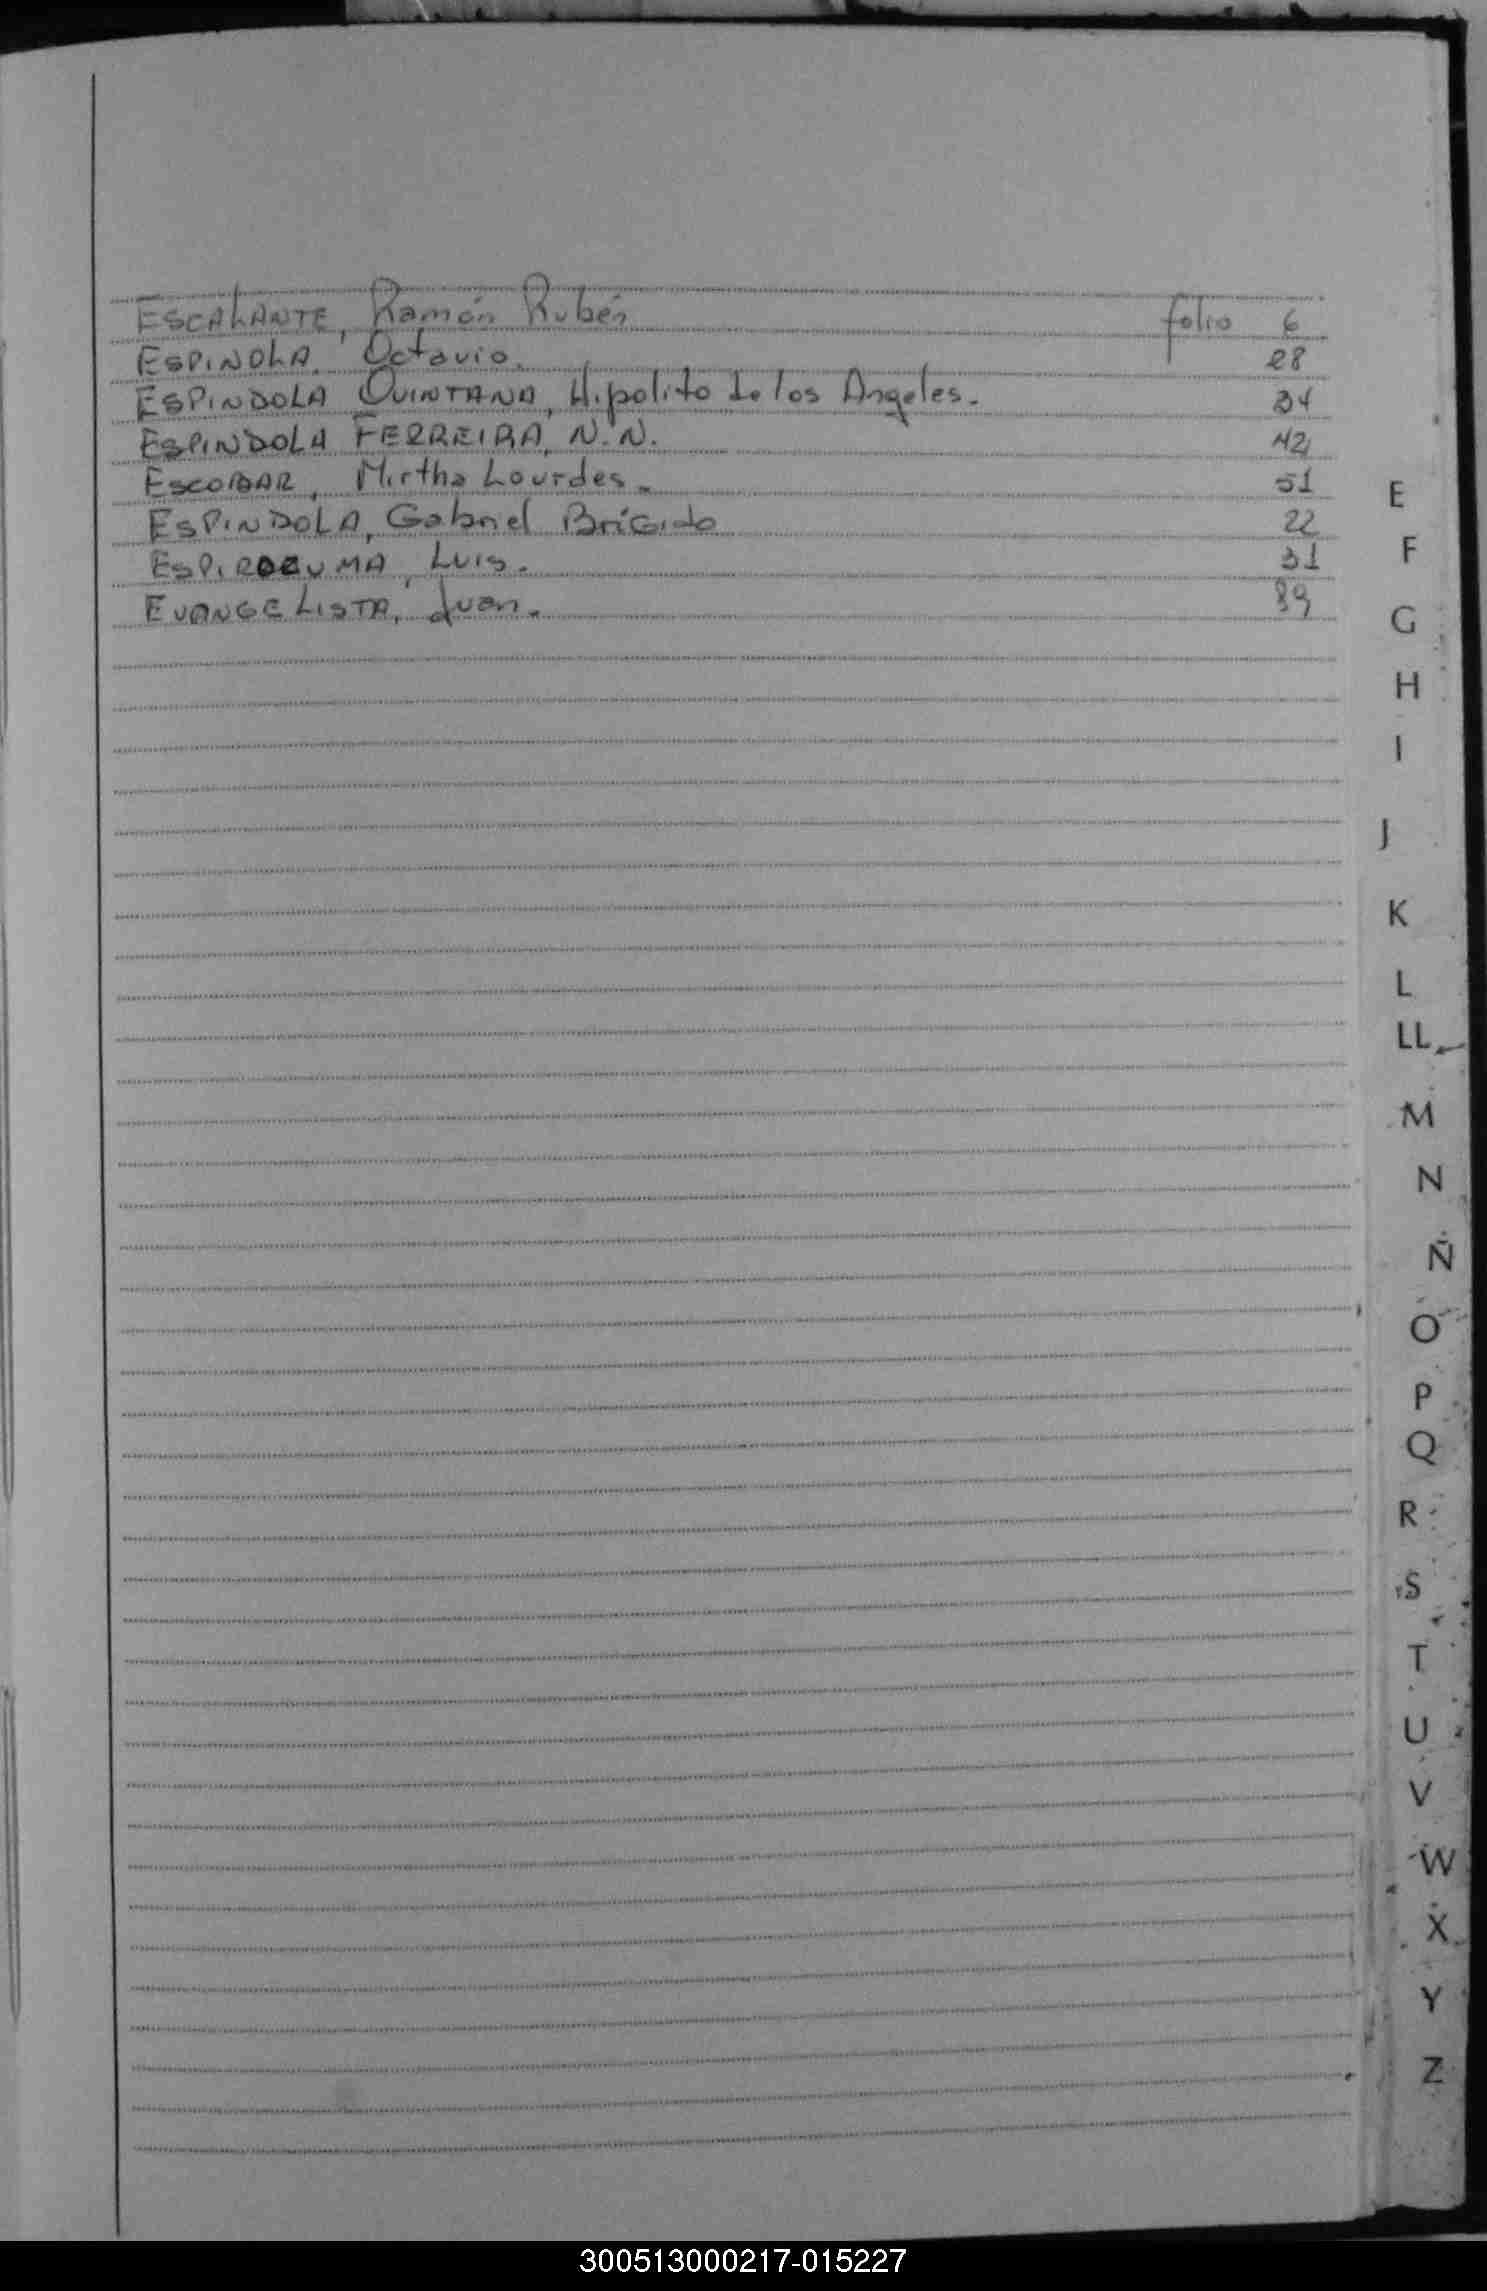 ESCALANTE, Ramón Rubén folio 6
ESPINOLA, Octavio. 28
ESPINDOLA QUINTANA, Hipolito de los Angeles. 34
ESPINDOLA FERREIRA, N.N. 42
ESCOBAR, Mirtha Lourdes. 51
ESPINDOLA, Gabriel BríGido 22
Luis. 31
EVANGELISTA, Juan. 89
E
F
G
H
I
J
K
L
LL
M
N
Ñ
O
P
Q
R
S
T
U
V
W
X
Y
Z
300513000217-015227